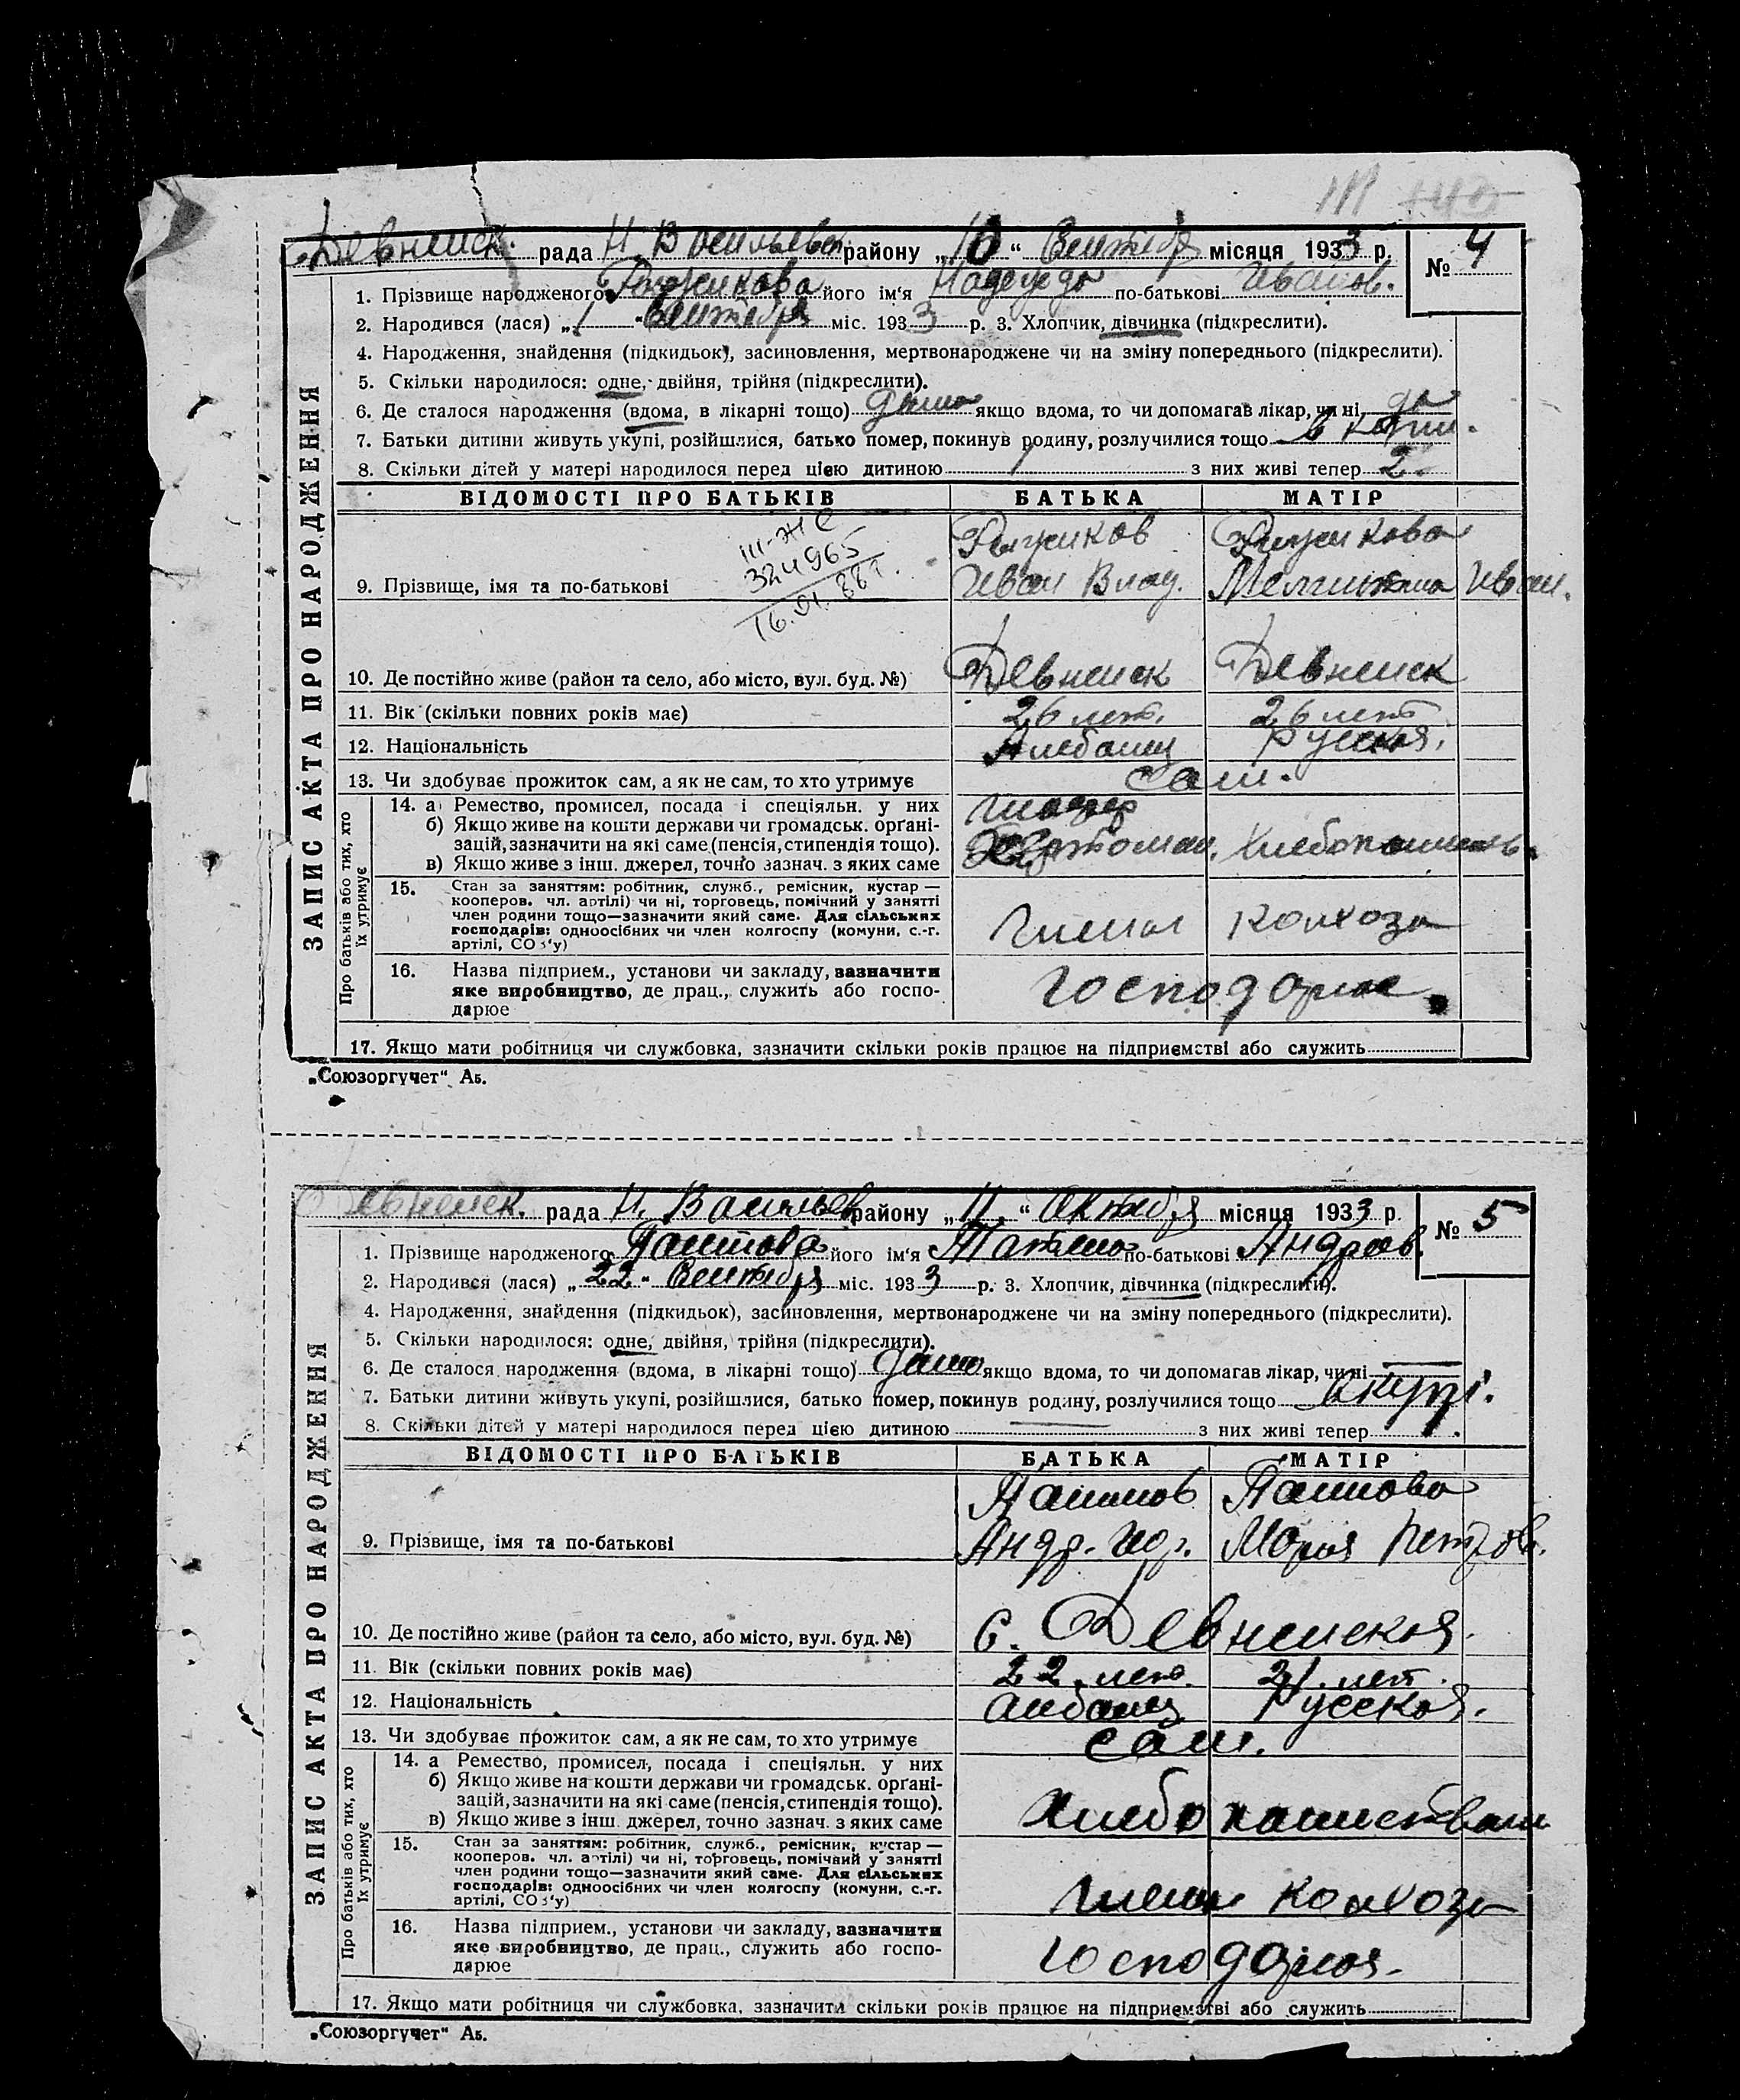 № 4
Девненск. рада Н. Васильевск району „10“ Сентября місяця 1933 р.
1. Прізвище народженого його ім'я Надежда по-батькові Иванов.
2. Народився (лася) „1“ Сентября міс. 1933 р. 3. Хлопчик, дівчинка (підкреслити).
4. Народження, знайдення (підкидьок), засиновлення, мертвонароджене чи на зміну попереднього (підкреслити).
5. Скільки народилося: одне, двійня, трійня (підкреслити).
6. Де сталося народження (вдома, в лікарні тощо) дома якщо вдома, то чи допомагав лікар, чи ні да
7. Батьки дитини живуть укупі, розійшлися, батько помер, покинув родину, розлучилися тощо в
8. Скільки дітей у матері народилося перед цією дитиною 1 з них живі тепер 2.
ЗАПИС АКТА ПРО НАРОДЖЕННЯ
ВІДОМОСТІ ПРО БАТЬКІВ БАТЬКА МАТІР
III-ЖС
324965
16.01.88г.
9. Прізвище, імя та по-батькові Иван Влад. Иван.
10. Де постійно живе (район та село, або місто, вул. буд. №) Девненск Девненск
11. Вік (скільки повних років має) 26 лет. 26 лет
12. Національність Албанец Русская.
13. Чи здобуває прожиток сам, а як не сам, то хто утримує сам.
Про батьків або тих, хто їх утримує
14. а) Ремество, промисел, посада і спеціяльн. у них
б) Якщо живе на кошти держави чи громадськ. орґані-
зацій, зазначити на які саме (пенсія, стипендія тощо).
в) Якщо живе з інш. джерел, точно зазнач. з яких саме
15. Стан за заняттям: робітник, служб., ремісник, кустар —
кооперов. чл. артілі) чи ні, торговець, помічний у занятті
член родини тощо—зазначити який саме. Для сільських
господарів: одноосібних чи член колгоспу (комуни, с.-г.
артілі, СОЗ'у) Члены колхоза
16. Назва підприєм., установи чи закладу, зазначити
яке виробництво, де прац., служить або госпо-
дарює
17. Якщо мати робітниця чи службовка, зазначити скільки років працює на підприємстві або служить
„Союзоргучет“ Аб.
№ 5
Девненск. рада Н. Васильев району „11“ Октября місяця 1933 р.
1. Прізвище народженого його ім'я Татьяна по-батькові Андреев.
2. Народився (лася) „22“ Сентября міс. 1933 р. 3. Хлопчик, дівчинка (підкреслити).
4. Народження, знайдення (підкидьок), засиновлення, мертвонароджене чи на зміну попереднього (підкреслити).
5. Скільки народилося: одне, двійня, трійня (підкреслити).
6. Де сталося народження (вдома, в лікарні тощо) дома якщо вдома, то чи допомагав лікар, чи ні
7. Батьки дитини живуть укупі, розійшлися, батько помер, покинув родину, розлучилися тощо вкупі.
8. Скільки дітей у матері народилося перед цією дитиною з них живі тепер 1.
ЗАПИС АКТА ПРО НАРОДЖЕННЯ
ВІДОМОСТІ ПРО БАТЬКІВ БАТЬКА МАТІР
9. Прізвище, імя та по-батькові Андр. Мария Петров.
10. Де постійно живе (район та село, або місто, вул. буд. №) С. Девненское.
11. Вік (скільки повних років має) 22 лет. 21 лет.
12. Національність албанец Русская.
13. Чи здобуває прожиток сам, а як не сам, то хто утримує сам.
Про батьків або тих, хто їх утримує
14. а Ремество, промисел, посада і спеціяльн. у них
б) Якщо живе на кошти держави чи громадськ. орґані-
зацій, зазначити на які саме (пенсія, стипендія тощо).
в) Якщо живе з інш. джерел, точно зазнач. з яких саме
15. Стан за заняттям: робітник, служб., ремісник, кустар —
кооперов. чл. артілі) чи ні, торговець, помічний у занятті
член родини тощо—зазначити який саме. Для сільських
господарів: одноосібних чи член колгоспу (комуни, с.-г.
артілі, СОЗ'у) члены колхоза
16. Назва підприєм., установи чи закладу, зазначити
яке виробництво, де прац., служить або госпо-
дарює
17. Якщо мати робітниця чи службовка, зазначити скільки років працює на підприємстві або служить
„Союзоргучет“ Аб.